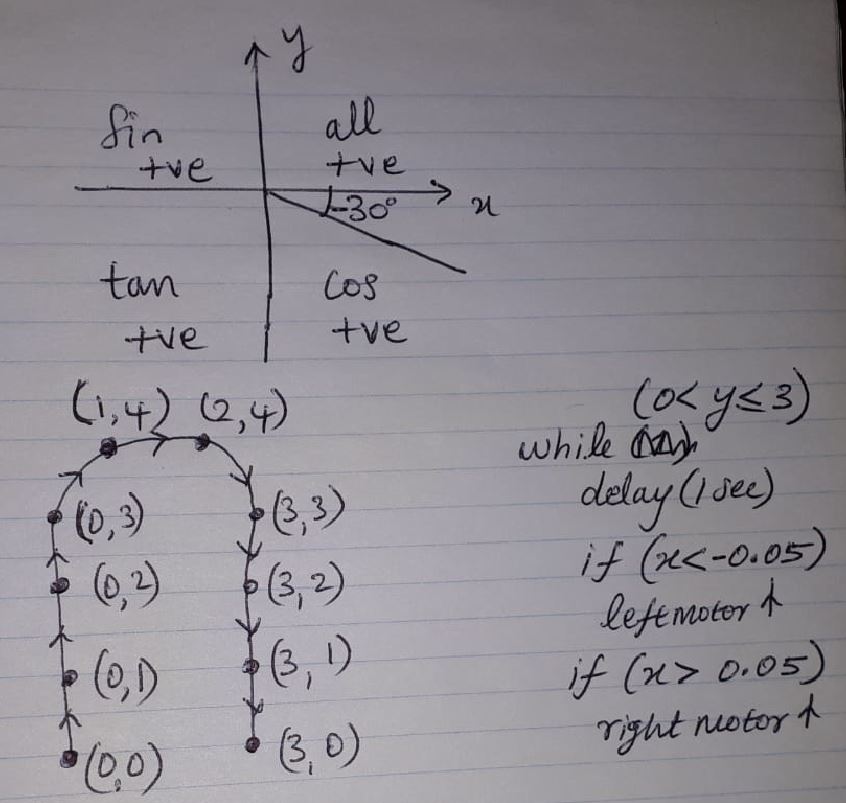 y
sin all
+ve +ve
x
-30°
tan cos
+ve +ve
(1,4) (2,4)
(0,3) (3,3)
(0,2) (3,2)
(0,1) (3,1)
(0,0) (3,0)
(0< y≤3)
while
delay (1 sec)
if (x<-0.05)
left motor ↑
if (x> 0.05)
right motor ↑